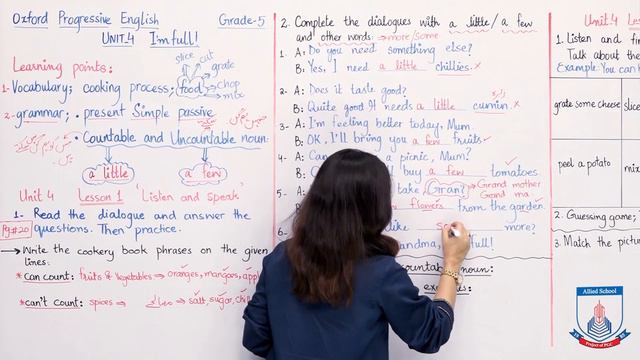 Oxford Progressive English Grade-5
UNIT.4 I'm full!
Learning points:
slice cut
grate
1- Vocabulary; cooking process; food
chop
mix
2- grammar; • present Simple passive
• Countable and Uncountable noun
a little a few
Unit 4 Lesson 1 'Listen and speak'
1- Read the dialogue and answer the
Pg#20 questions. Then practice.
→ Write the cookery book phrases on the given
lines:
*can count: fruits & vegetables → oranges, mangoes, appl
*can't count: spices → salt, sugar, chil
2. Complete the dialogues with a little/a few
and other words: → more/some
1. A: Do you need something else?
B: Yes, I need a little chillies. x
2- A: Does it taste good?
B: Quite good. It needs a little cumin. x
3- A: I'm feeling better today, Mum.
B: OK, I'll bring you a few fruits ✓
4- A: Can a picnic, Mum?
buy a few tomatoes
5- A: take Gran? → Grand mother
Grand ma
flowers from the garden.
6- like so more?
andma, full!
countable noun:
Unit.4 Les
1. Listen and fi
Talk about the
Example: You can
grate some cheese slice
peel a potato mix
2. Guessing game;
3. Match the pictur
Allied School
Project of PGC